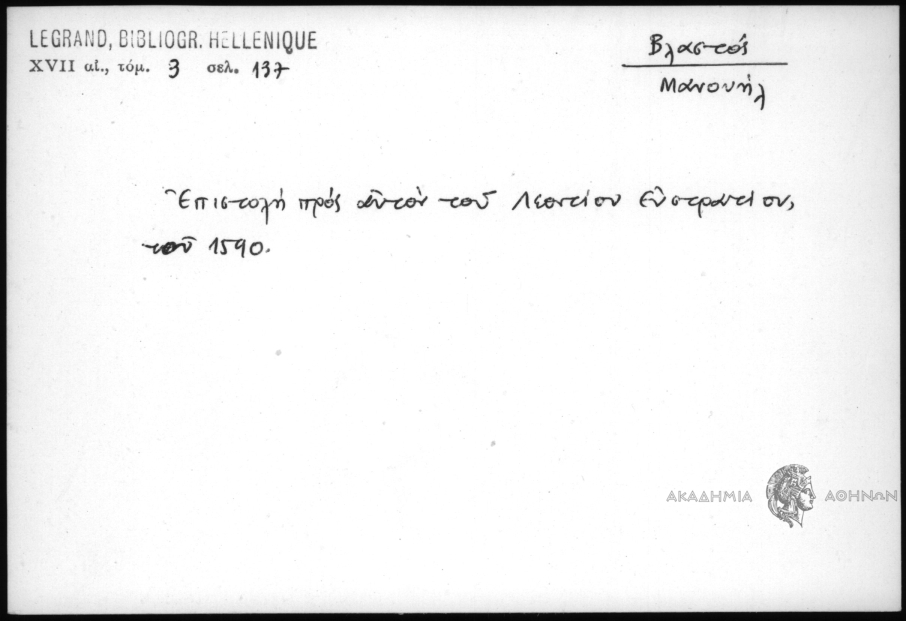 LEGRAND, BIBLIOGR. HELLENIQUE
XVII αἰ., τόμ. 3 σελ. 137
Βλαστός
Μανουήλ
Ἐπιστολή πρός αὐτόν τοῦ Λεοντίου Εὐστρατίου,
τοῦ 1590.
ΑΚΑΔΗΜΙΑ ΑΘΗΝΩΝ